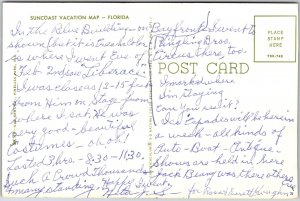 SUNCOAST VACATION MAP - FLORIDA
In the Blue Building on
shown, but it is Treehold
so where I went Eve of
Feb - 2nd saw Liberace!
I was close as 13-15 feet
from Him on Stage - from
where I sat. He was
very good - beautiful
Costumes - oh ok!
Lasted 3 hrs - 8:30 - 11:30.
Such a Crowd thousands
+ many standing. Happy
Bayfront I went to
Ringling Bros.
Circus here, too.
POST CARD
PLACE
STAMP
HERE
I marked where
I'm staying
Can you read it?
Ice Capades will be here in
a week - all kinds of
Auto - Boat - Antique -
Shows are held in here
Jack Benny was there other